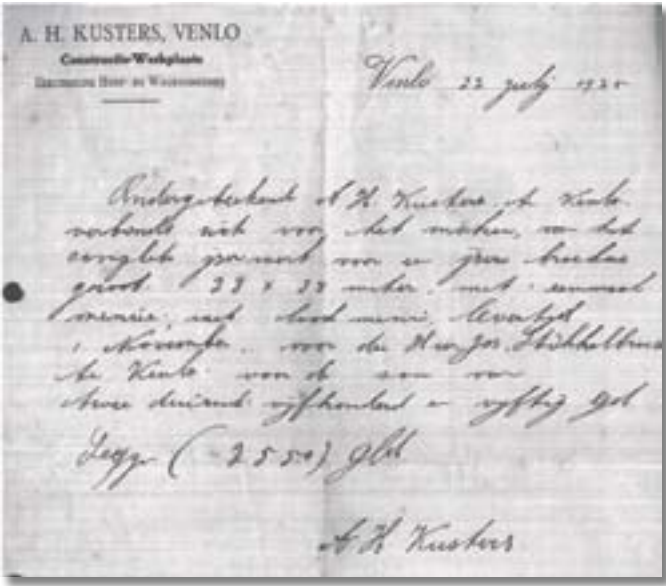 A. H. KUSTERS, VENLO
Constructie-Werkplaats
Electrische Hoef- en Wagensmederij
Venlo 22 july 1925
Ondergeteekend A H Kusters te Venlo
verbindt zich voor het maken, van het
complete voor
groot 33 x 33 meter, met eenmaal
menie, met lood menie, levertijd
1 November. voor den Heer Jos.
te Venlo voor de som van
twee duizend vijfhonderd en vyftig gld
Zegge ( 2550) gld
A H Kusters